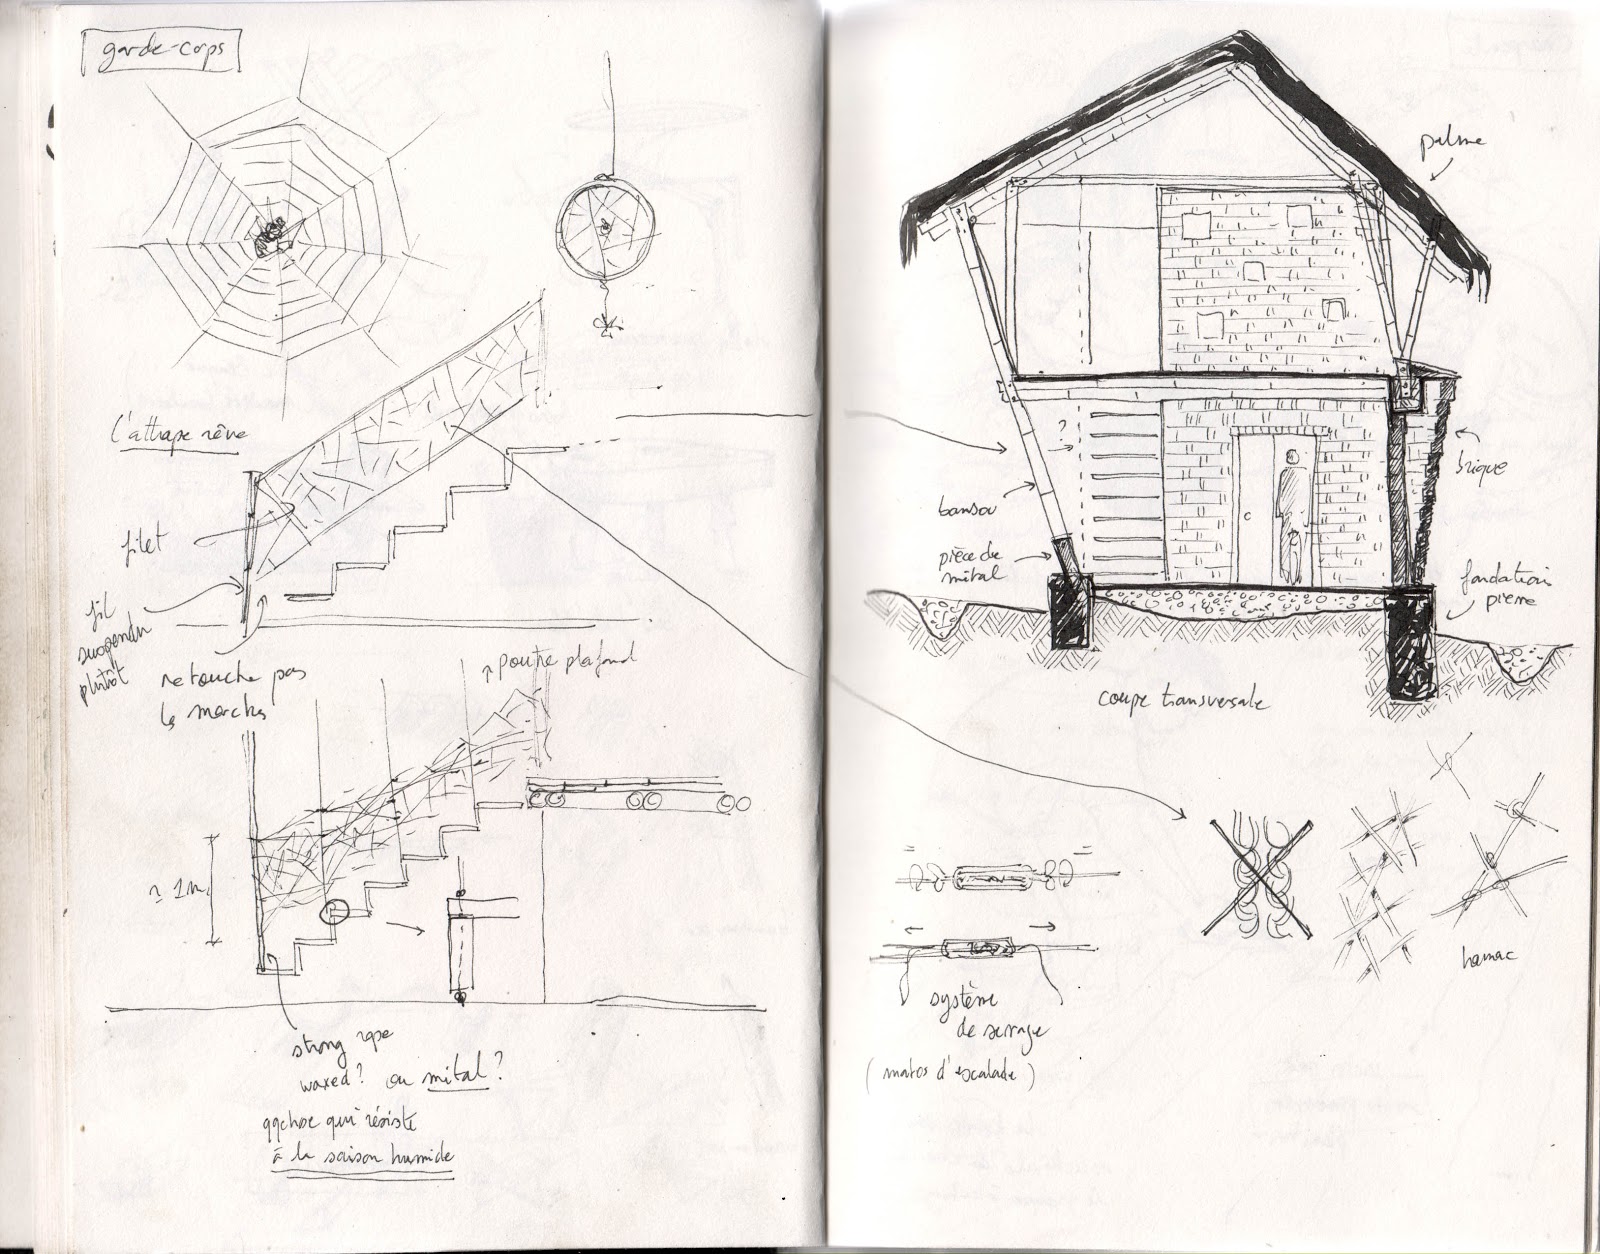 garde-corps
l'attrape rêve
filet
fil
suspendu
plutôt
retouche pas
les marches
poutre plafond
≈ 1m
strong rope
waxed? ou métal?
qqchose qui résiste
à la saison humide
palme
brique
?
bambou
pièce de
métal
fondation
pierre
coupe transversale
=
=
système
de serrage
(matos d'escalade)
hamac